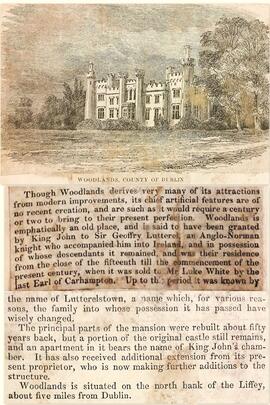 WOODLANDS, COUNTY OF DUBLIN
Though Woodlands derives very many of its attractions
from modern improvements, its chief artificial features are of
no recent creation, and are such as it would require a century
or two to bring to their present perfection. Woodlands is
emphatically an old place, and is said to have been granted
by King John to Sir Geoffry Lutterel, an Anglo-Norman
knight who accompanied him into Ireland, and in possession
of whose descendants it remained, and was their residence
from the close of the fifteenth till the commencement of the
present century, when it was sold to Mr Luke White by the
last Earl of Carhampton. Up to th period it was known by
the name of Luttrelstown, a name which, for various rea-
sons, the family into whose possession it has passed have
wisely changed.
The principal parts of the mansion were rebuilt about fifty
years back, but a portion of the original castle still remains,
and an apartment in it bears the name of King John's cham-
ber. It has also received additional extension from its pre-
sent proprietor, who is now making further additions to the
structure.
Woodlands is situated on the north bank of the Liffey,
about five miles from Dublin.